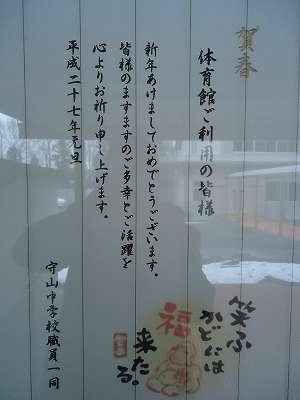 賀春
体育館ご利用の皆様
新年あけましておめでとうございます。
皆様のますますのご多幸とご活躍を
心よりお祈り申し上げます。
平成二十七年元旦
守山中学校職員一同
笑ふ
かどには
福
来たる。